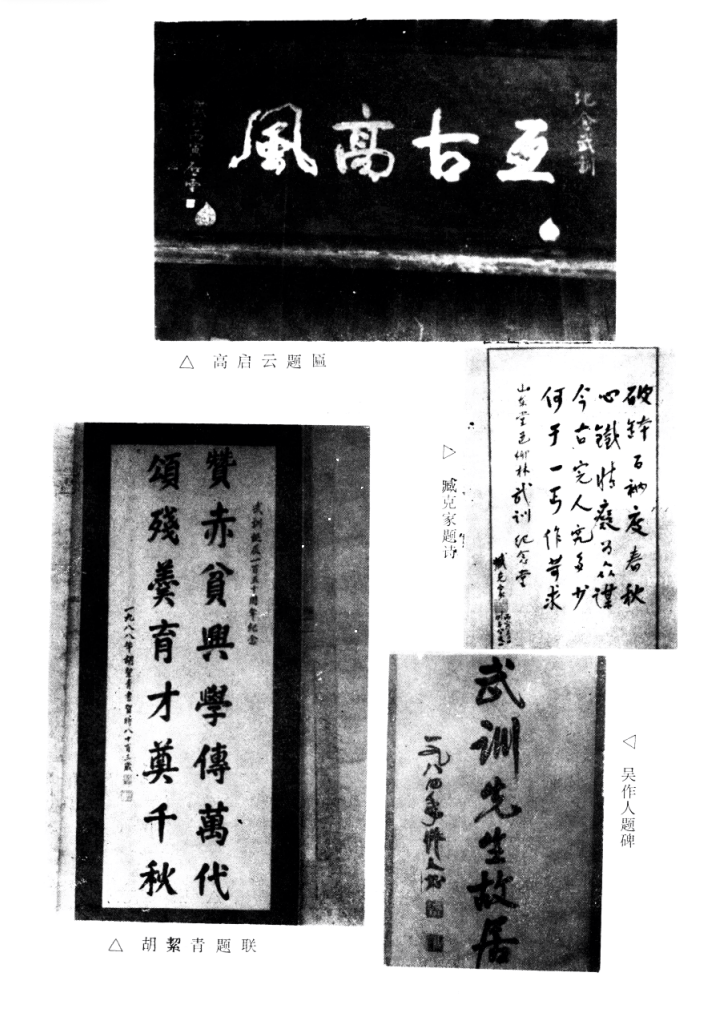 纪念武训
亙古高風
△ 高启云题匾
破钵百衲度春秋
心铁情癡为众谋
今古完人究多少
何于一丐作苛求
山东堂邑柳林武训纪念堂
臧克家
▷ 臧克家题诗
武訓誕辰一百五十周年纪念
贊赤貧興學傳萬代
頌殘羹育才奠千秋
一九八八年胡絜青書時年八十有三歲
△ 胡絜青题联
武训先生故居
一九八四年
◁ 吴作人题碑